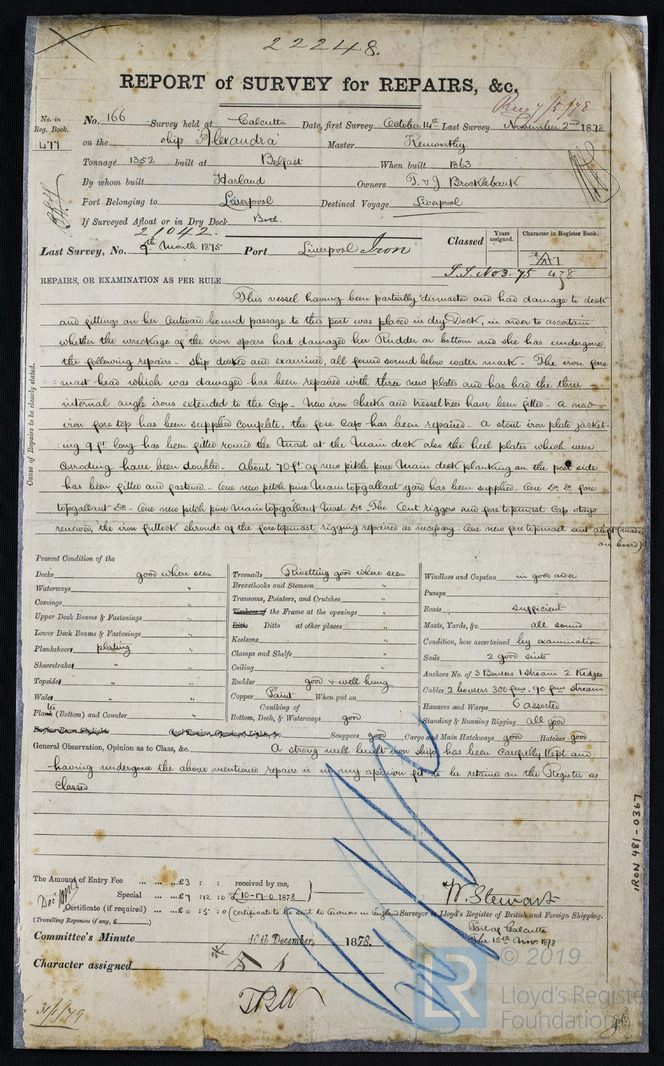 22248.
REPORT of SURVEY for REPAIRS, &c.
No. in Reg. Book. 477
No. 166 Survey held at Calcutta Date, first Survey October 14th Last Survey November 2nd 1878
on the ship "Alexandra" Master Kenworthy
Tonnage 1352 built at Belfast When built 1863
By whom built Harland Owners T. & J. Brocklebank
Port Belonging to Liverpool Destined Voyage Liverpool
If Surveyed Afloat or in Dry Dock Both
21042.
Last Survey, No. 9th Month 1875 Port Liverpool Iron
Classed Years assigned. Character in Register Book.
S.S. No 3-75 4,78
REPAIRS, OR EXAMINATION AS PER RULE
Cause of Repairs to be clearly stated.
This vessel having been partially dismasted and had damage to deck
and fittings on her outward bound passage to this port was placed in dry Dock, in order to ascertain
whether the wreckage of the iron spars had damaged her Rudder or bottom and she has undergone
the following repairs - Ship docked and examined, all found sound below water mark - The iron fore
mast head which was damaged has been repaired with three new plates and has had the three
internal angle irons extended to the Cap - New iron cheeks and tressel trees have been fitted - A new
iron fore top has been supplied complete, the fore Cap has been repaired - A stout iron plate jacket-
ing 9 ft long has been fitted round the Mast at the Main deck also the heel plates which were
corroding have been doubled - About 70 ft of new pitch pine Main deck planking on the port side
has been fitted and fastened - One new pitch pine Main topgallant yard has been supplied - One Do Do fore
topgallant Do - One new pitch pine Main topgallant Mast Do - The Cent riggers and fore topmast Cap stays
renewed, the iron futtock shrouds of the fore topmast rigging repaired as necessary - One new fore topmast sent aloft (made
on board)
Present Condition of the
Decks good where seen
Waterways "
Comings "
Upper Deck Beams & Fastenings "
Lower Deck Beams & Fastenings "
Planksheers plating "
Sheerstrakes "
Topsides "
Wales "
Plank (Bottom) and Counter "
Treenails Rivetting good where seen
Breasthooks and Stemson "
Transoms, Pointers, and Crutches "
Timbers of the Frame at the openings "
Ditto Ditto at other places "
Keelsons "
Clamps and Shelfs "
Ceiling "
Rudder good & well hung
Copper Paint When put on
Caulking of Bottom, Deck, & Waterways good
Scuppers good Cargo and Main Hatchways good Hatches good
Windlass and Capstan in good order
Pumps "
Boats sufficient
Masts, Yards, &c. all sound
Condition, how ascertained by examination
Sails 2 good suits
Anchors No. of 3 Bowers 1 Stream 2 Kedges
Cables 2 bowers 300 fms, 90 fms stream
Hawsers and Warps 6 assorted
Standing & Running Rigging all good
General Observation, Opinion as to Class, &c. A strong well built iron ship has been carefully kept and
having undergone the above mentioned repairs is in my opinion fit to be retained on the Register as
Classed
The Amount of Entry Fee £3 : : received by me,
Special £7 : 12 : 0 £10-17-0 1878
Certificate (if required) £0 : 5 : 0 (Certificate to be sent to Owners in England)
(Travelling Expenses if any, £ )
W. Stewart
Surveyor to Lloyd's Register of British and Foreign Shipping.
Port of Calcutta
The 15th Nov 1878
Committee's Minute 10th December, 1878.
Character assigned A 1
31/1/79
IRON 481-0367
© 2019
LR
Lloyd's Register
Foundation